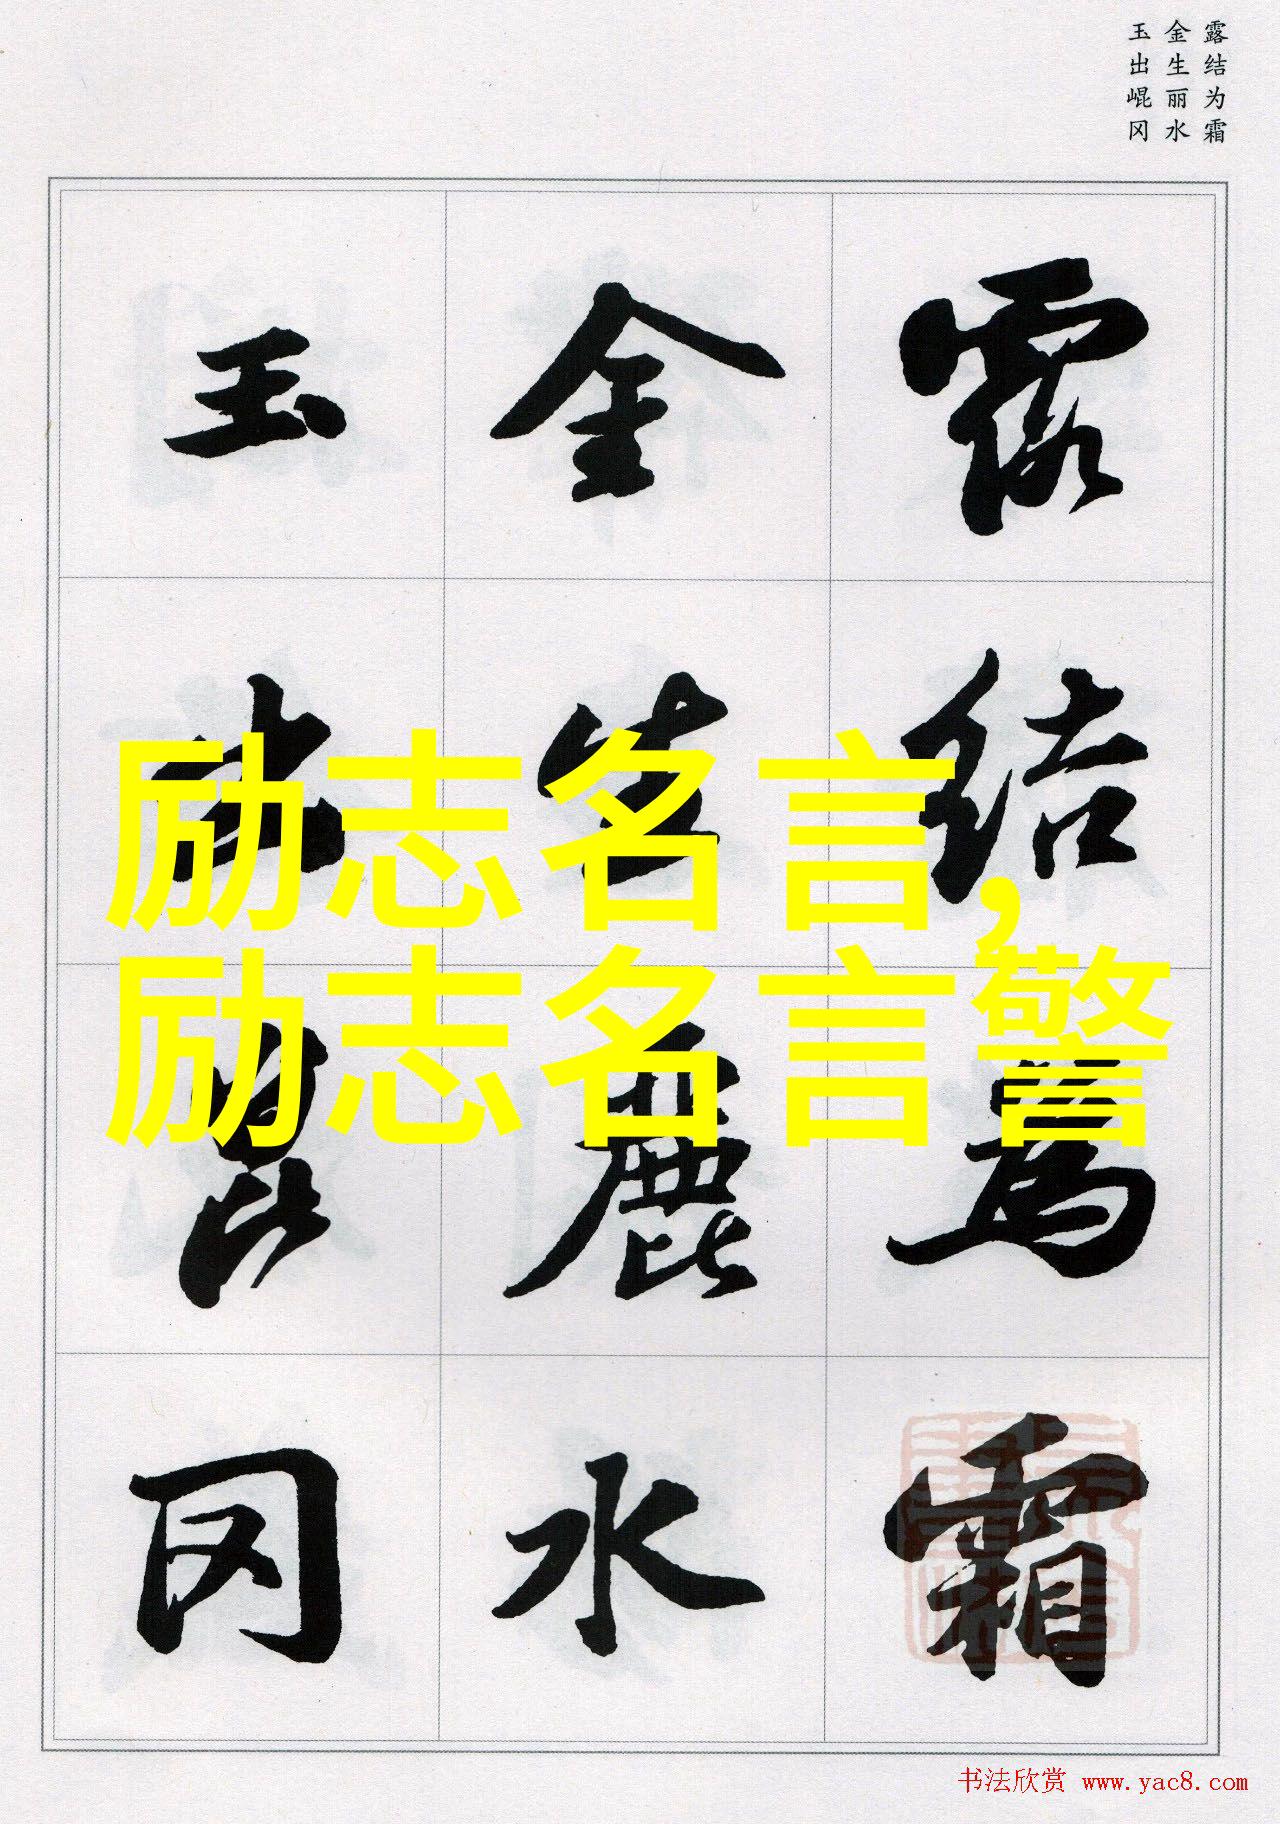 露结为霜
金生丽水
玉出崐冈
露結為霜
金生麗水
玉出崑冈
励志名言,
励志名言警
书法欣赏 www.yac8.com